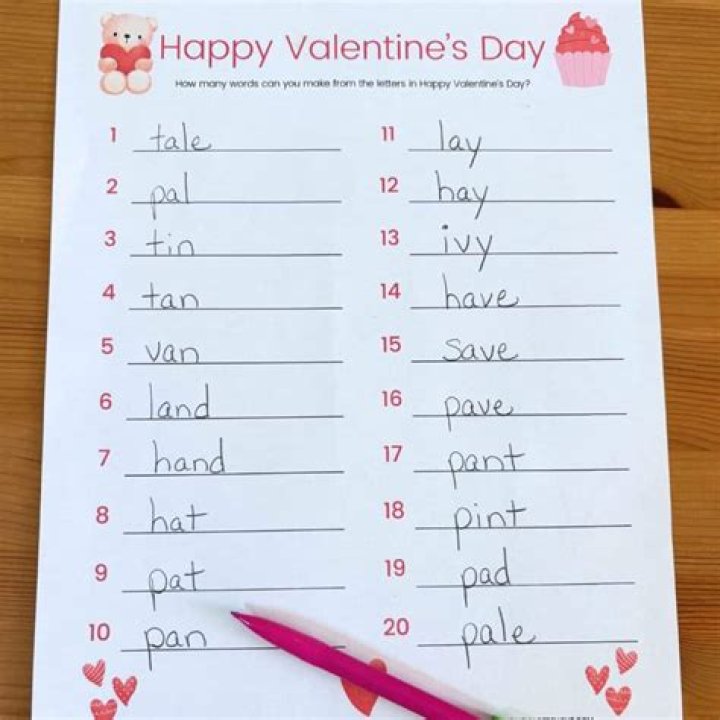 Happy Valentine's Day
How many words can you make from the letters in Happy Valentine's Day?
1 tale
2 pal
3 tin
4 tan
5 van
6 land
7 hand
8 hat
9 pat
10 pan
11 lay
12 hay
13 ivy
14 have
15 save
16 pave
17 pant
18 pint
19 pad
20 pale